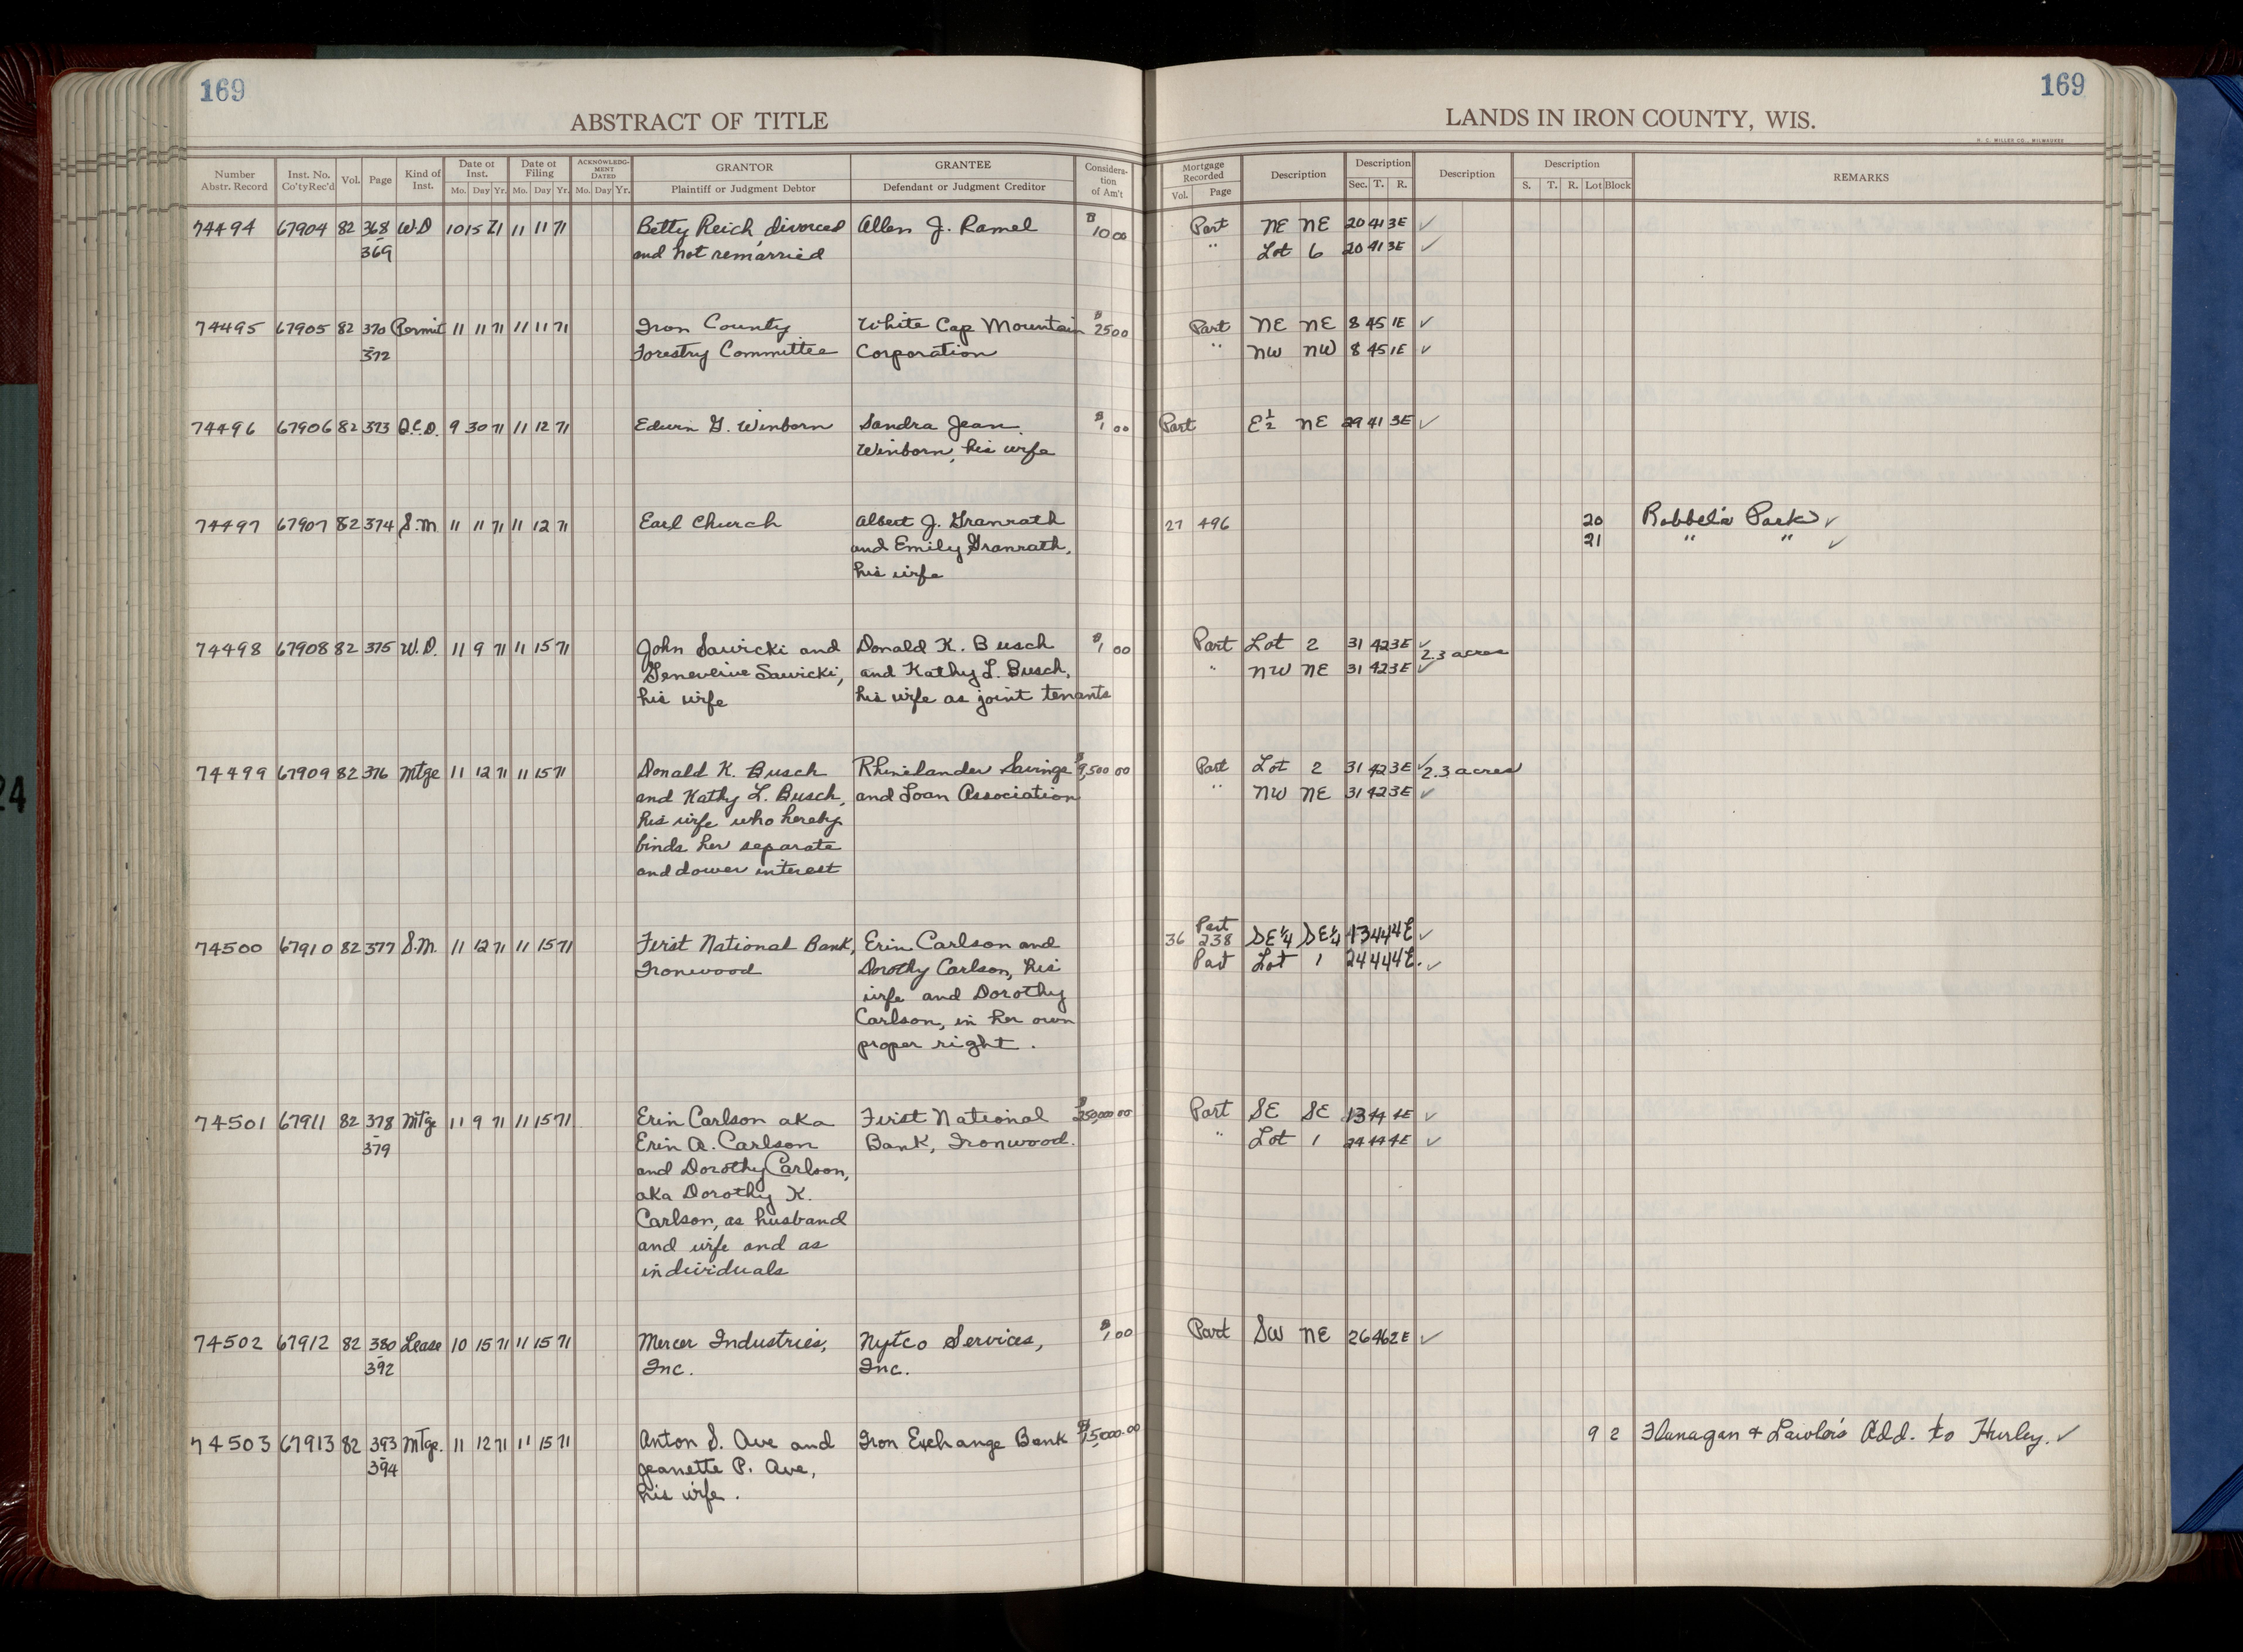 169
ABSTRACT OF TITLE
Number Abstr. Record
Inst. No. Co'tyRec'd
Vol.
Page
Kind of Inst.
Date of Inst.
Mo. Day Yr.
Date of Filing
Mo. Day Yr.
ACKNOWLEDGMENT DATED
Mo. Day Yr.
GRANTOR
Plaintiff or Judgment Debtor
GRANTEE
Defendant or Judgment Creditor
Consideration of Am't
169
LANDS IN IRON COUNTY, WIS.
H. C. MILLER CO., MILWAUKEE
Mortgage Recorded
Vol. Page
Description
Description
Sec. T. R.
Description
Description
S. T. R. Lot Block
REMARKS
74494 67904 82 368 W.D 10 15 71 11 11 71 Betty Reich, divorced Allen J. Ramel $10 00 Part NE NE 20 41 3E ✓
- 369 and not remarried " Lot 6 20 41 3E ✓
74495 67905 82 370 Permit 11 11 71 11 11 71 Iron County White Cap Mountain $25 00 Part NE NE 8 45 1E ✓
- 372 Forestry Committee Corporation " NW NW 8 45 1E ✓
74496 67906 82 373 Q.C.D. 9 30 71 11 12 71 Edwin G. Winborn Sandra Jean $1 00 Part E½ NE 29 41 3E ✓
Winborn, his wife
74497 67907 82 374 S.M. 11 11 71 11 12 71 Earl Church Albert J. Granrath 27 496 20 Robbel's Park ✓
and Emily Granrath, 21 " " ✓
his wife
74498 67908 82 375 W.D. 11 9 71 11 15 71 John Sawicki and Donald K. Busch $1 00 Part Lot 2 31 42 3E ✓ 2.3 acres
Genevieve Sawicki, and Kathy L. Busch, " NW NE 31 42 3E ✓
his wife his wife as joint tenants
74499 67909 82 376 Mtge 11 12 71 11 15 71 Donald K. Busch Rhinelander Savings $9,500 00 Part Lot 2 31 42 3E ✓ 2.3 acres
and Kathy L. Busch, and Loan Association " NW NE 31 42 3E ✓
his wife who hereby
binds her separate
and dower interest
Part
74500 67910 82 377 S.M. 11 12 71 11 15 71 First National Bank, Erin Carlson and 36 238 SE¼ SE¼ 13 44 4E ✓
Ironwood Dorothy Carlson, his Part Lot 1 24 44 4E. ✓
wife and Dorothy
Carlson, in her own
proper right.
74501 67911 82 378 Mtge 11 9 71 11 15 71 Erin Carlson aka First National $250,000 00 Part SE SE 13 44 4E ✓
- 379 Erin A. Carlson Bank, Ironwood. " Lot 1 24 44 4E ✓
and Dorothy Carlson,
aka Dorothy K.
Carlson, as husband
and wife and as
individuals
74502 67912 82 380 Lease 10 15 71 11 15 71 Mercer Industries, Nytco Services, $1 00 Part SW NE 26 46 2E ✓
- 392 Inc. Inc.
74503 67913 82 393 Mtge. 11 12 71 11 15 71 Anton S. Ave and Iron Exchange Bank $15,000.00 9 2 Flanagan & Lawlor's Add. to Hurley. ✓
- 394 Jeanette P. Ave,
his wife.
24